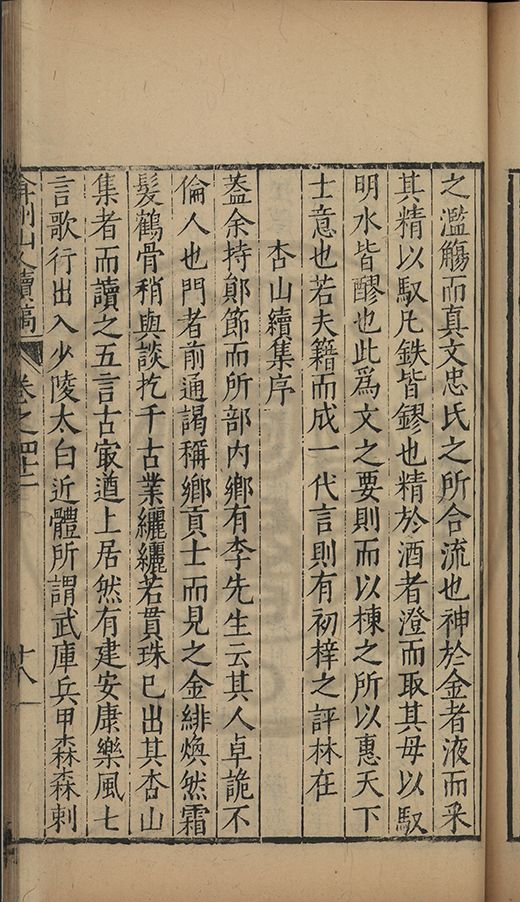 之濫觴而真文忠氏之所合流也神於金者液而采
其精以馭凡鉄皆鏐也精於酒者澄而取其母以馭
明水皆醪也此為文之要則而以棟之所以惠天下
士意也若夫籍而成一代言則有初梓之評林在
杏山續集序
葢余持鄖節而所部內鄉有李先生云其人卓詭不
倫人也門者前通謁稱鄉貢士而見之金緋煥然霜
髮鶴骨稍與談扢千古業纚纚若貫珠已出其杏山
集者而讀之五言古冣遒上居然有建安康樂風七
言歌行出入少陵太白近體所謂武庫兵甲森森刺
弇州山人續稿 卷之四十二 十八